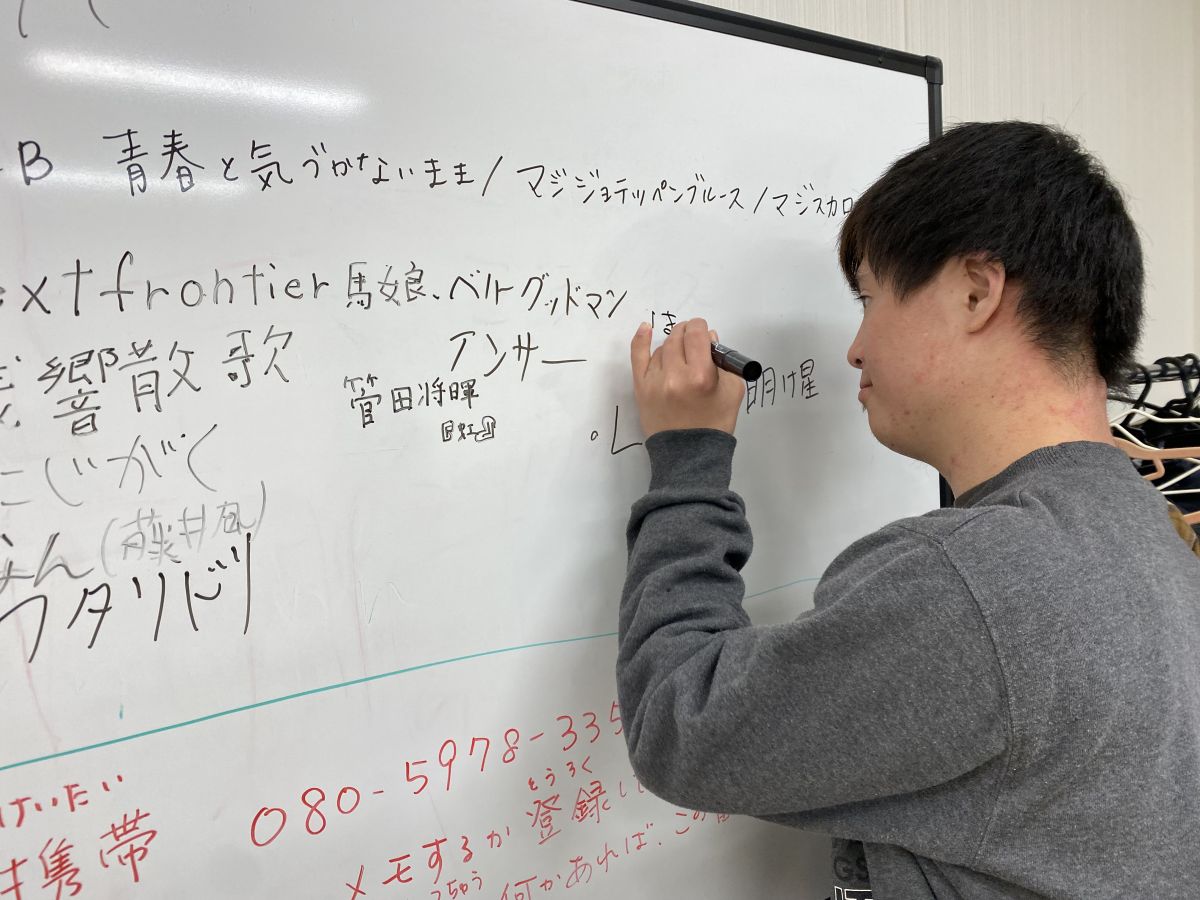 B 青春と気づかないまま/マジジョテッペンブルース/マジスカロ
xt frontier 馬娘、ベルトグッドマン
ほ
響散歌 アンサー
菅田将暉 明け星
『虹』
。L
にじがく
ん(藤井風)
フタリドリ
けいたい
携帯 080-5978-335
とうろく
メモするか登録し
何かあれば、この